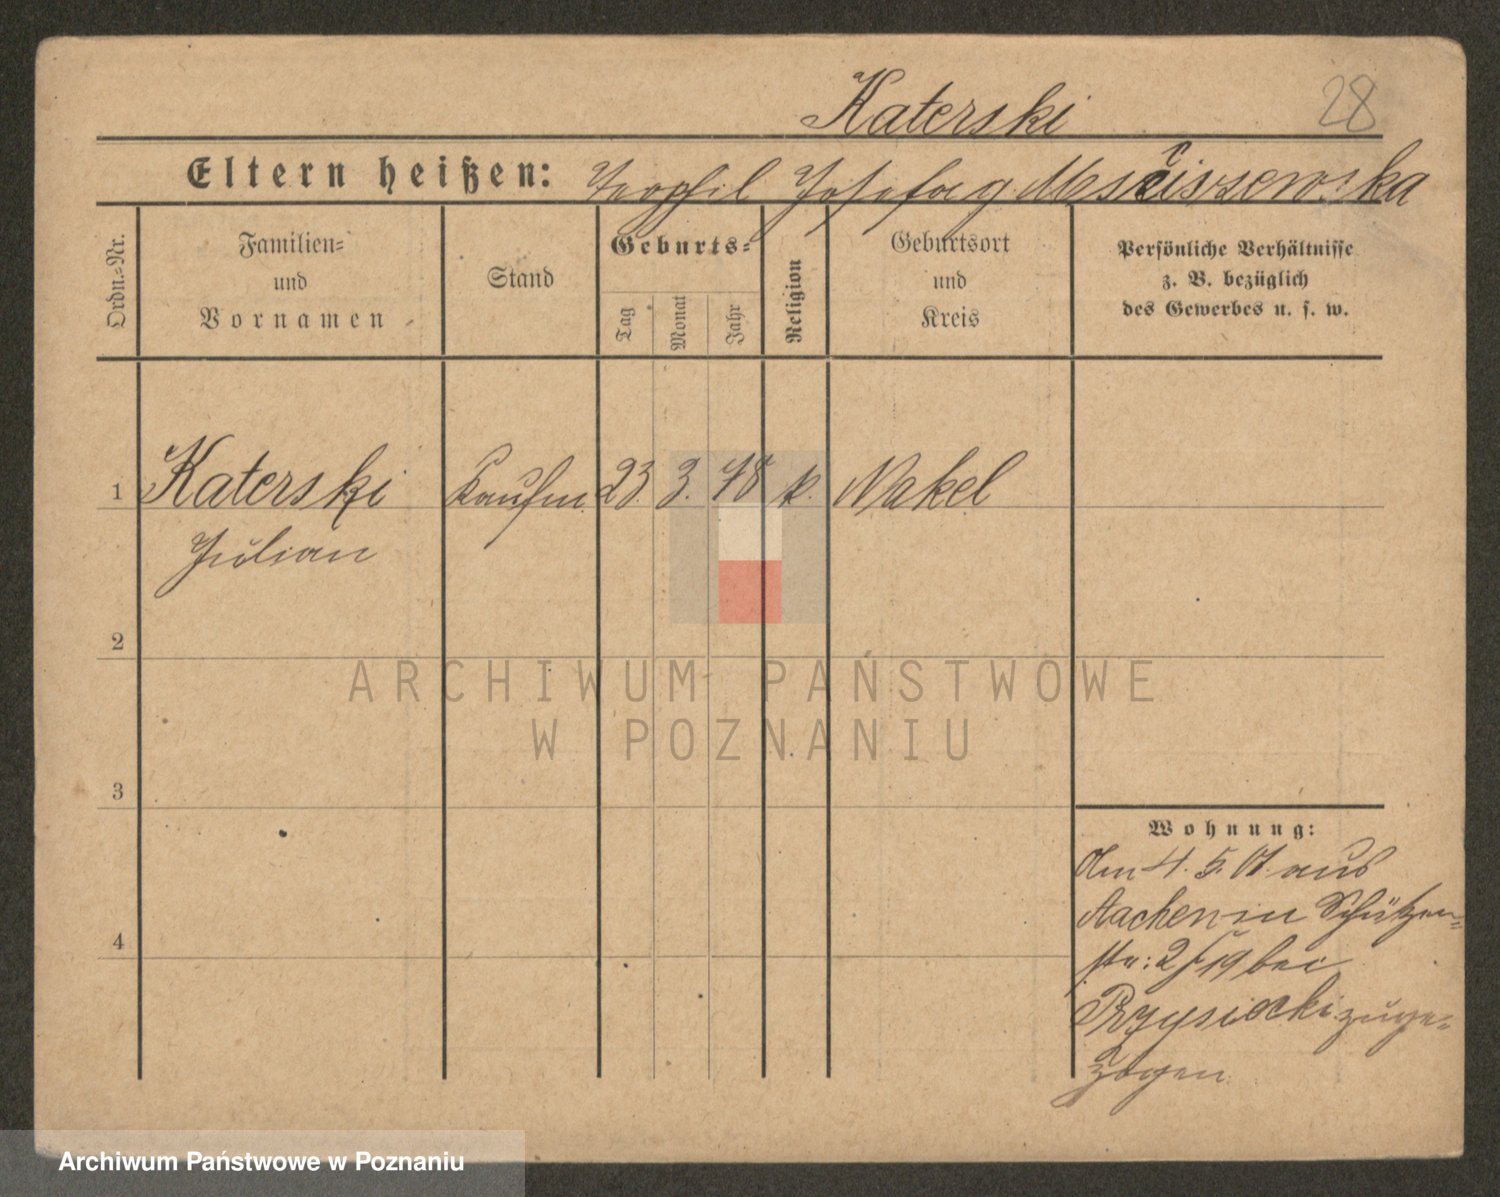 Katerski 28
Eltern heißen: Teophil Josefa g. Msciszewska
Ordn.-Nr.
Familien-
und
Vornamen
Stand
Geburts-
Tag
Monat
Jahr
Religion
Geburtsort
und
Kreis
Persönliche Verhältnisse
z. B. bezüglich
des Gewerbes u. s. w.
1 Katerski Kaufm. 23. 3. 78 k. Nakel
Julian
2
3
4
ARCHIWUM PAŃSTWOWE
W POZNANIU
Wohnung:
Am 4. 5. 01. aus
Aachen in Schützen-
str: 2/19 bei
Przysiecki zuge-
zogen.
Archiwum Państwowe w Poznaniu